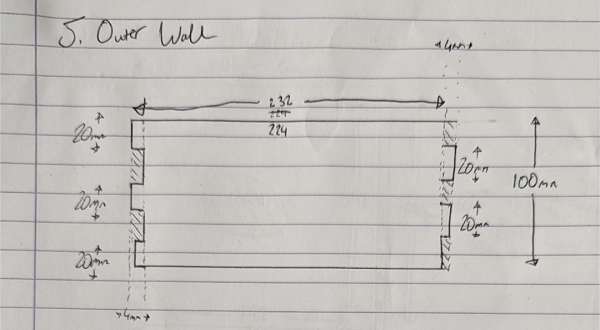 5. Outer Wall
4mm
232
224
224
20mm
20mm
20mm
20mm
20mm
100mm
4mm